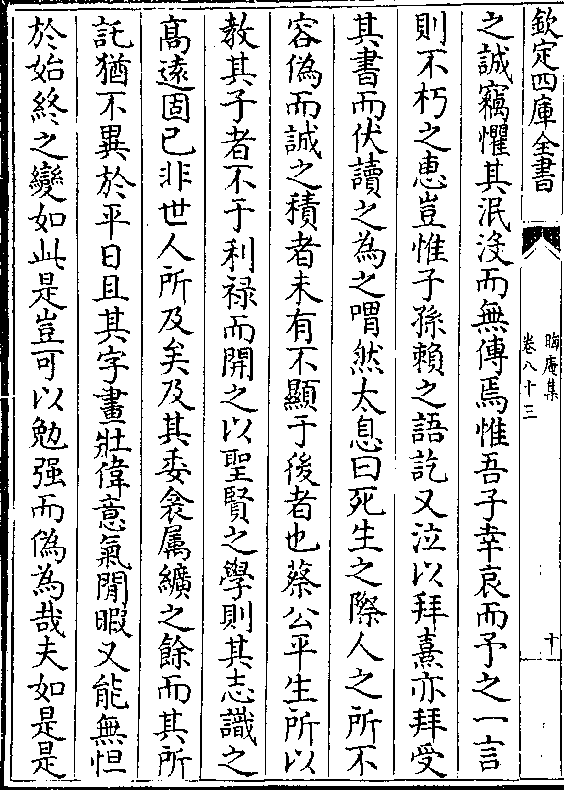 欽定四庫全書
晦庵集
卷八十三
十
之誠竊懼其泯沒而無傳焉惟吾子幸哀而予之一言
則不朽之惠豈惟子孫賴之語訖又泣以拜熹亦拜受
其書而伏讀之為之喟然太息曰死生之際人之所不
容偽而誠之積者未有不顯于後者也蔡公平生所以
教其子者不于利禄而開之以聖賢之學則其志識之
髙逺固已非世人所及矣及其委衾屬纊之餘而其所
託猶不異於平日且其字畫壯偉意氣閒暇又能無怛
於始終之變如此是豈可以勉强而偽為哉夫如是是